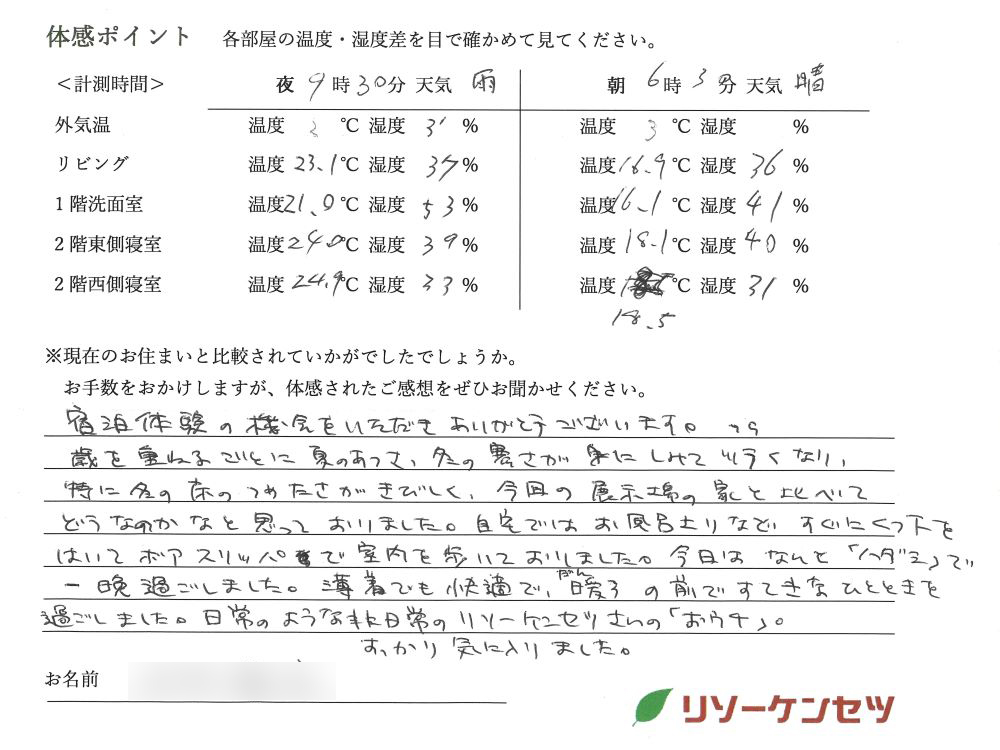 体感ポイント 各部屋の温度・湿度差を目で確かめて見てください。
<計測時間> 夜 9時30分 天気 雨 朝 6時3分 天気 晴
外気温 温度 2 ℃ 湿度 % 温度 3 ℃ 湿度 %
リビング 温度 23.1 ℃ 湿度 37 % 温度 16.9 ℃ 湿度 36 %
1階洗面室 温度 21.0 ℃ 湿度 53 % 温度 16.1 ℃ 湿度 41 %
2階東側寝室 温度 24.0 ℃ 湿度 39 % 温度 18.1 ℃ 湿度 40 %
2階西側寝室 温度 24.9 ℃ 湿度 33 % 温度 ℃ 湿度 31 %
18.5
※現在のお住まいと比較されていかがでしたでしょうか。
お手数をおかけしますが、体感されたご感想をぜひお聞かせください。
宿泊体験の機会をいただきありがとうございます。
歳を重ねるごとに夏のあつさ、冬の寒さが身にしみてツラくなり、
特に冬の床のつめたさがきびしく、今回の展示場の家と比べて
どうなのかなと思っておりました。自宅ではお風呂上りなど、すぐにくつ下を
はいてボアスリッパで室内を歩いておりました。今日はなんと「ハダシ」で
一晩過ごしました。薄着でも快適で、暖ろの前ですてきなひとときを
だん
過ごしました。日常のような非日常のリソーケンセツさんの「おウチ」。
すっかり気に入りました。
お名前
リソーケンセツ